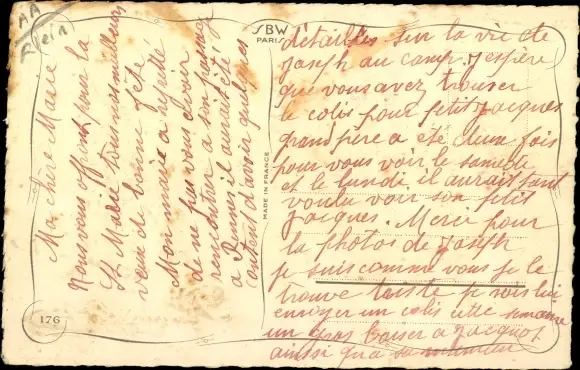 AA
Ma chère Marie
Nous vous offrons pour la
Ste Marie tous nos meilleurs
vœux de bonne fête
Mon mari a regretté
de ne pas vous avoir
rencontrer a son passage
a Rennes il aurait été
content d'avoir quelques
SBW
PARIS
MADE IN FRANCE
176
détailles sur la vie de
Joseph au camp. J espère
que vous avez trouver
le colis pour petit Jacques
grand père a été deux fois
pour vous voir le samedi
et le lundi il aurait tant
voulu voir son petit
Jacques. Merci pour
la photos de Joseph
je suis comme vous je le
trouve triste je vais lui
envoyer un colis cette semaine
un gros baiser a Jacquot
ainsi qu'a sa maman